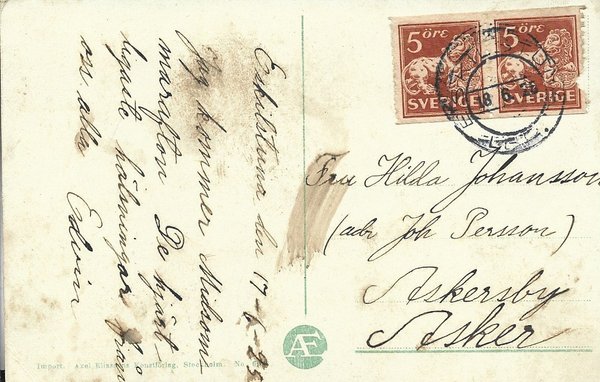 5 ÖRE 5 ÖRE
SVERIGE SVERIGE
18. 6. 25
Eskilstuna den 17-6-25
Jag kommer Midsom-
marafton De hjärt-
ligaste hälsningar från
oss alla Edvin
Fru Hilda Johansson
(adr Joh Persson)
Askersby
Asker
AE
Import. Axel Eliassons Konstförlag, Stockholm. No